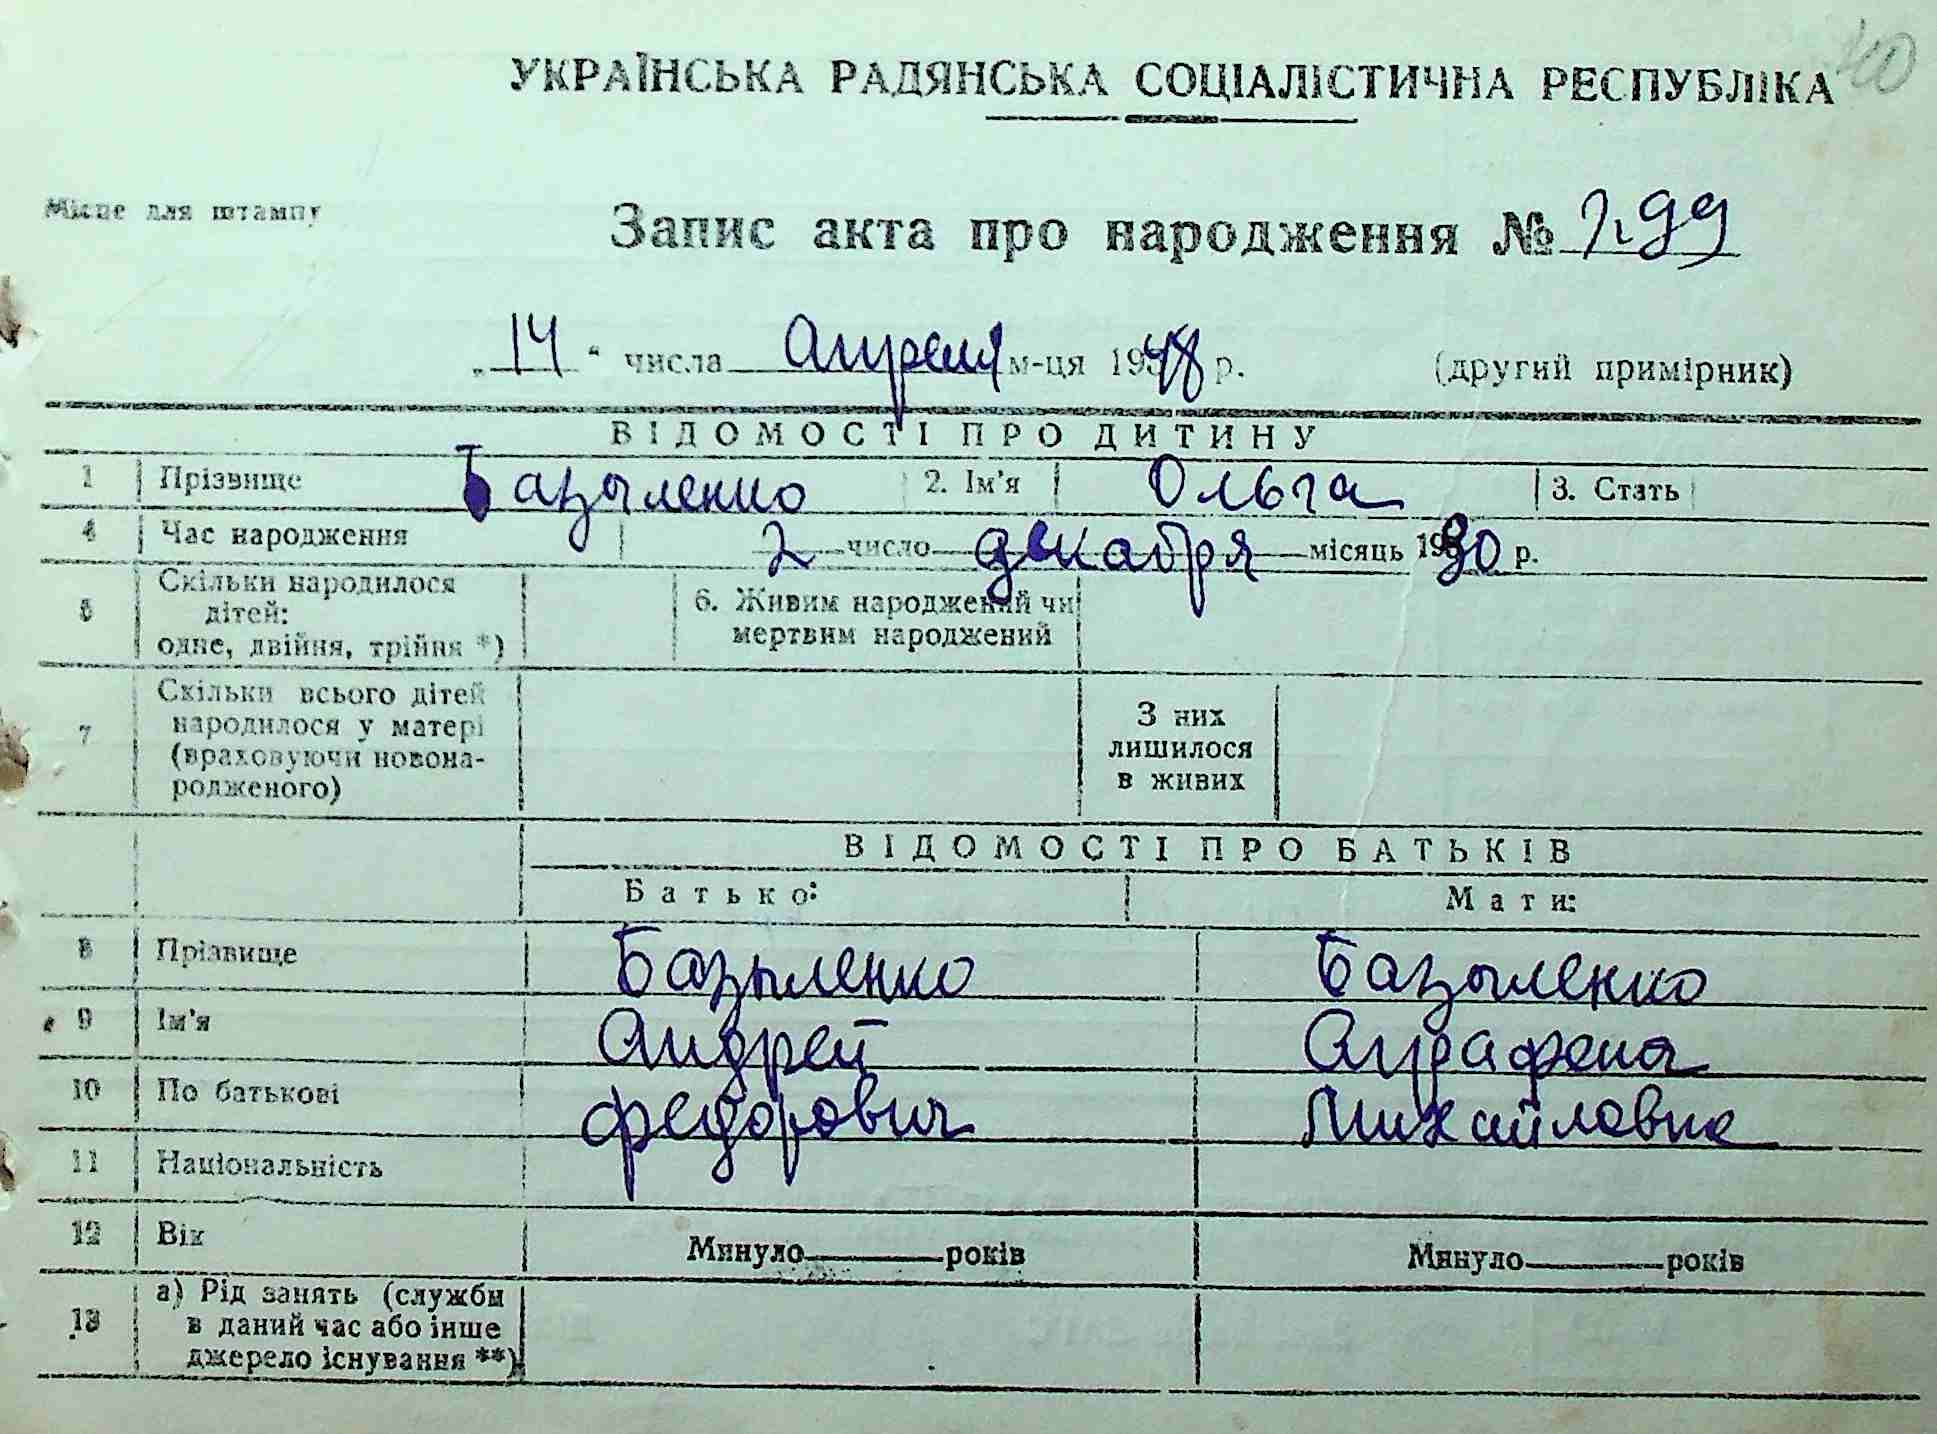 40
УКРАЇНСЬКА РАДЯНСЬКА СОЦІАЛІСТИЧНА РЕСПУБЛІКА
Місце для штампу
Запис акта про народження № 299
„ 14 “ числа Апреля м-ця 1948 р. (другий примірник)
ВІДОМОСТІ ПРО ДИТИНУ
1 Прізвище Базыленко 2. Ім'я Ольга 3. Стать
4 Час народження 2 число декабря місяць 1930 р.
5 Скільки народилося дітей: одне, двійня, трійня *)
6. Живим народжений чи мертвим народжений
7 Скільки всього дітей народилося у матері (враховуючи новонародженого)
З них лишилося в живих
ВІДОМОСТІ ПРО БАТЬКІВ
Батько: Мати:
8 Прізвище Базыленко Базыленко
9 Ім'я Андрей Аграфена
10 По батькові Федорович Михайловна
11 Національність
12 Вік Минуло років Минуло років
13 а) Рід занять (службы в даний час або інше джерело існування **)